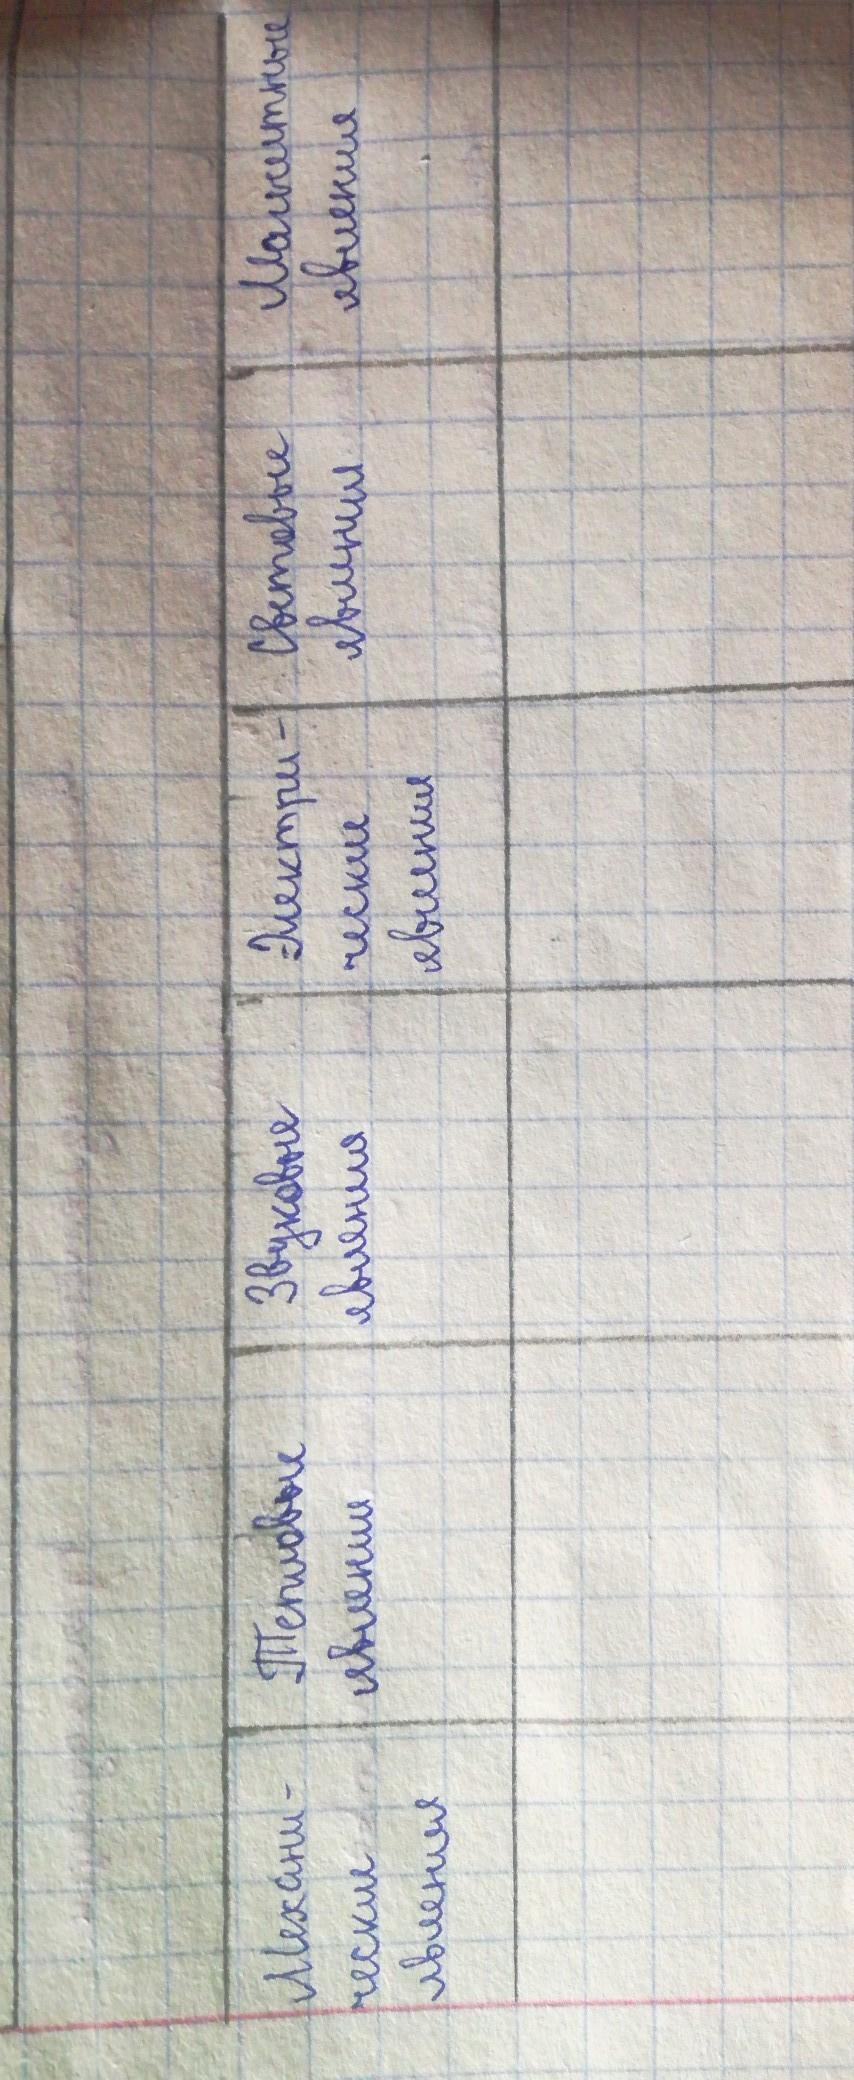 Механи-
ческие
явления
Тепловые
явления
Звуковые
явления
Электри-
ческие
явления
Световые
явления
Магнитные
явления